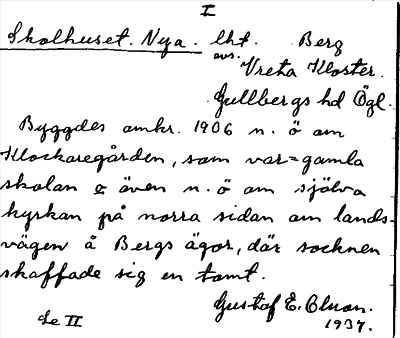 I
Skolhuset. Nya. lht. Berg
avs. Vreta Kloster.
Gullbergs hd Ögl.
Byggdes omkr. 1906 n. ö om
Klockaregården, som var = gamla
skolan & även n. ö om själva
kyrkan på norra sidan om lands-
vägen å Bergs ägor, där socknen
skaffade sig en tomt.
Gustaf E. Olson.
1937.
Se II